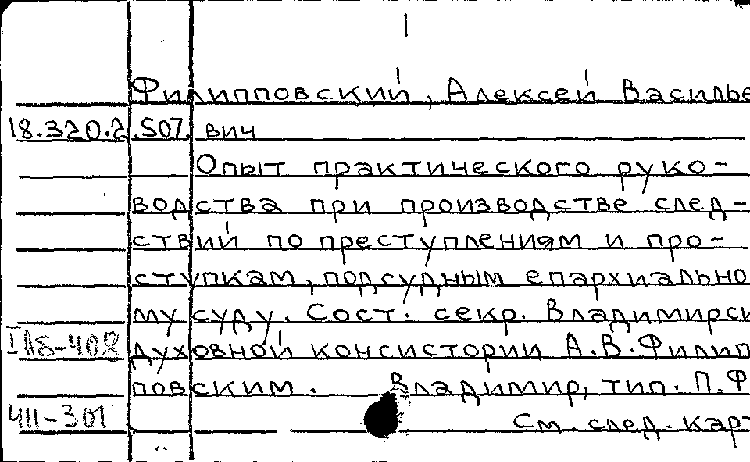 Филипповский, Алексей Василье
18.320.2.507. вич
Опыт практического руко-
водства при производстве след-
ствий по преступлениям и про-
ступкам, подсудным епархиально
му суду. Сост. секр. Владимирск
духовной консистории А.В. Филип
повским. Владимир, тип. П.Ф
411-301 См. след. карт